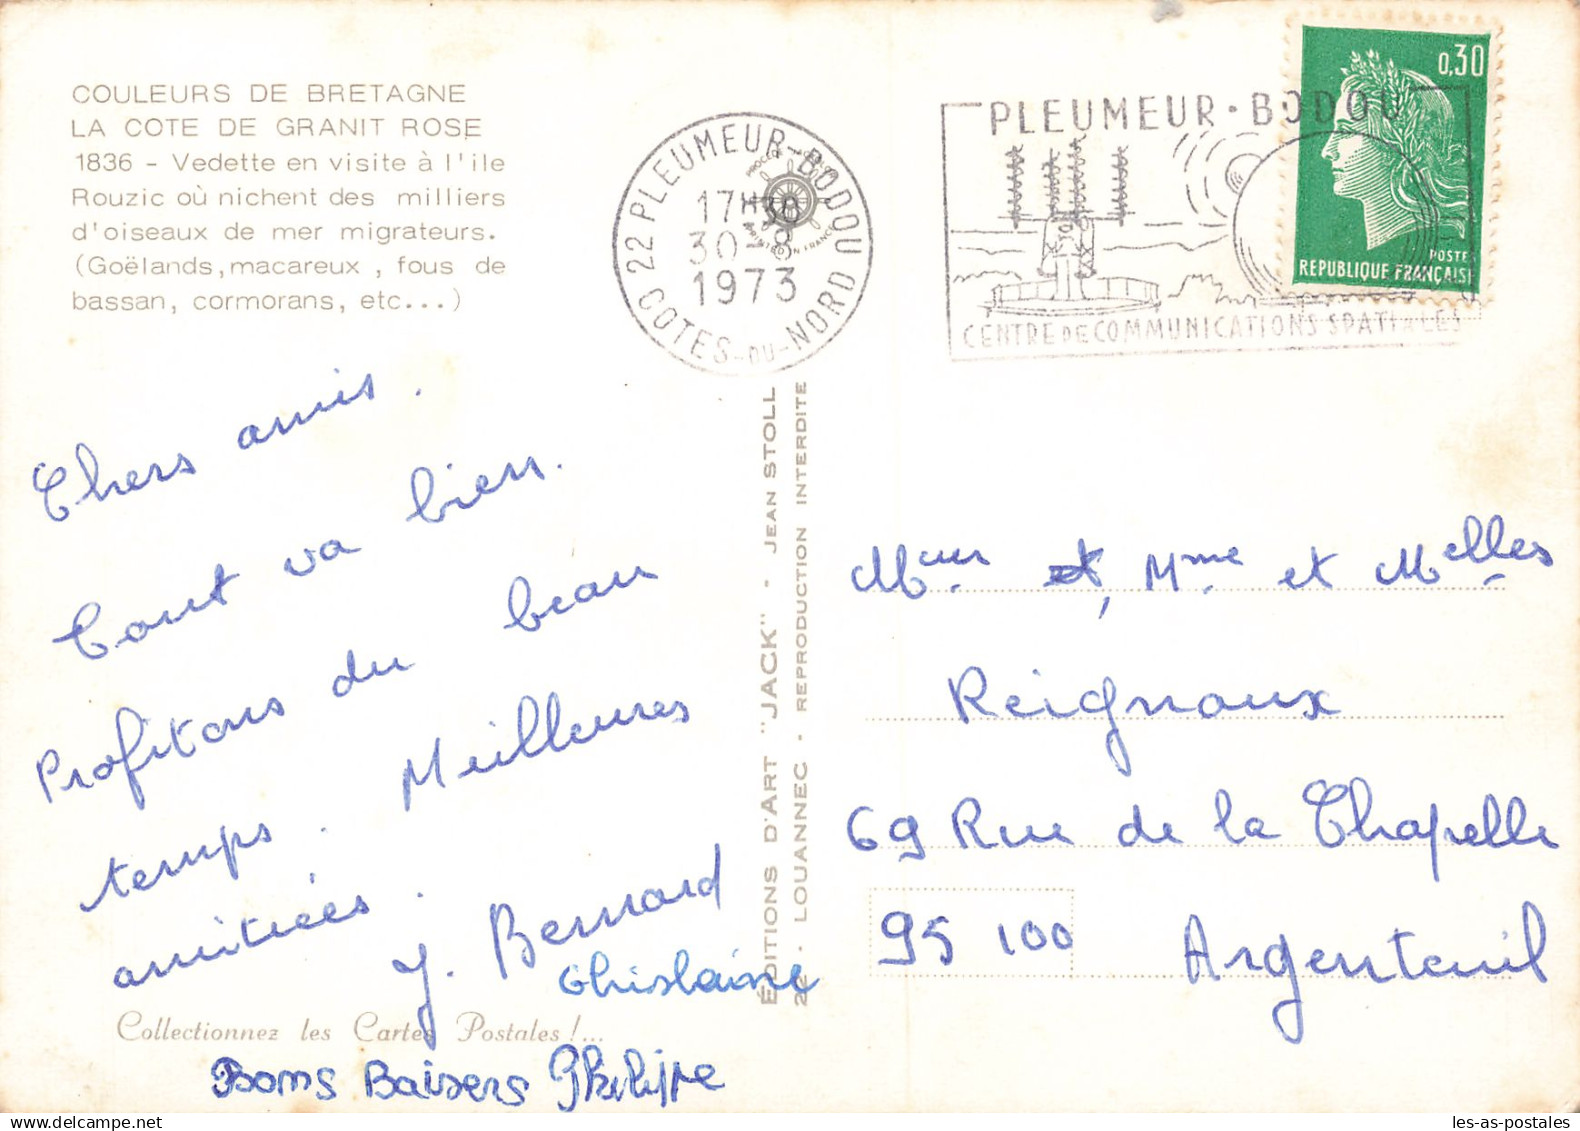 COULEURS DE BRETAGNE
LA COTE DE GRANIT ROSE
1836 - Vedette en visite à l'ile
Rouzic où nichent des milliers
d'oiseaux de mer migrateurs.
(Goëlands, macareux, fous de
bassan, cormorans, etc...)
22 PLEUMEUR-BODOU
17H30
30-8
1973
COTES-DU-NORD
PRINTED IN FRANCE
PLEUMEUR·BODOU
CENTRE DE COMMUNICATIONS SPATIALES
0,30
POSTE
REPUBLIQUE FRANÇAISE
Chers amis.
Tout va bien.
Profitons du beau
temps. Meilleures
amitiées.
J. Bernard
Ghislaine
Collectionnez les Cartes Postales!...
Bons Baisers Philippe
ÉDITIONS D'ART "JACK" - JEAN STOLL
22 - LOUANNEC - REPRODUCTION INTERDITE
Meur et, Mme et Melles
Reignoux
69 Rue de la Chapelle
95 100 Argenteuil
les-as-postales